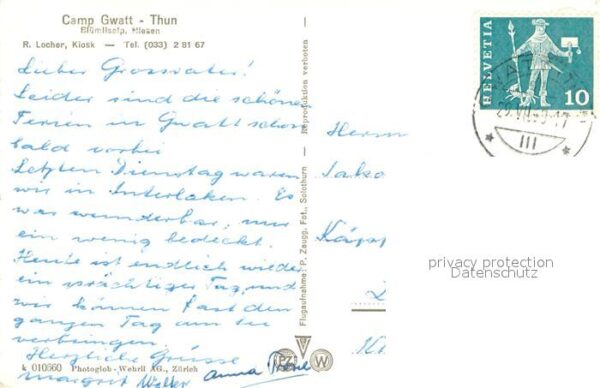 Camp Gwatt - Thun
Blümlisalp, Niesen
R. Locher, Kiosk — Tel. (033) 2 81 67
Lieber Grossvater!
Leider sind die schönen
Ferien in Gwatt schon
bald vorbei
Letzten Dienstag waren
wir in Interlaken. Es
war wunderbar, nur
ein wenig bedeckt.
Heute ist endlich wieder
ein prächtiger Tag, und
wir können fast den
ganzen Tag am See
verbringen.
Herzliche Grüsse
Margrit Walter Anna
k 010560 Photoglob-Wehrli AG., Zürich
Flugaufnahme: P. Zaugg, Fot., Solothurn — Reproduktion verboten
PZ W
HELVETIA
10
III
Herrn
Jako
Käpp
privacy protection
Datenschutz